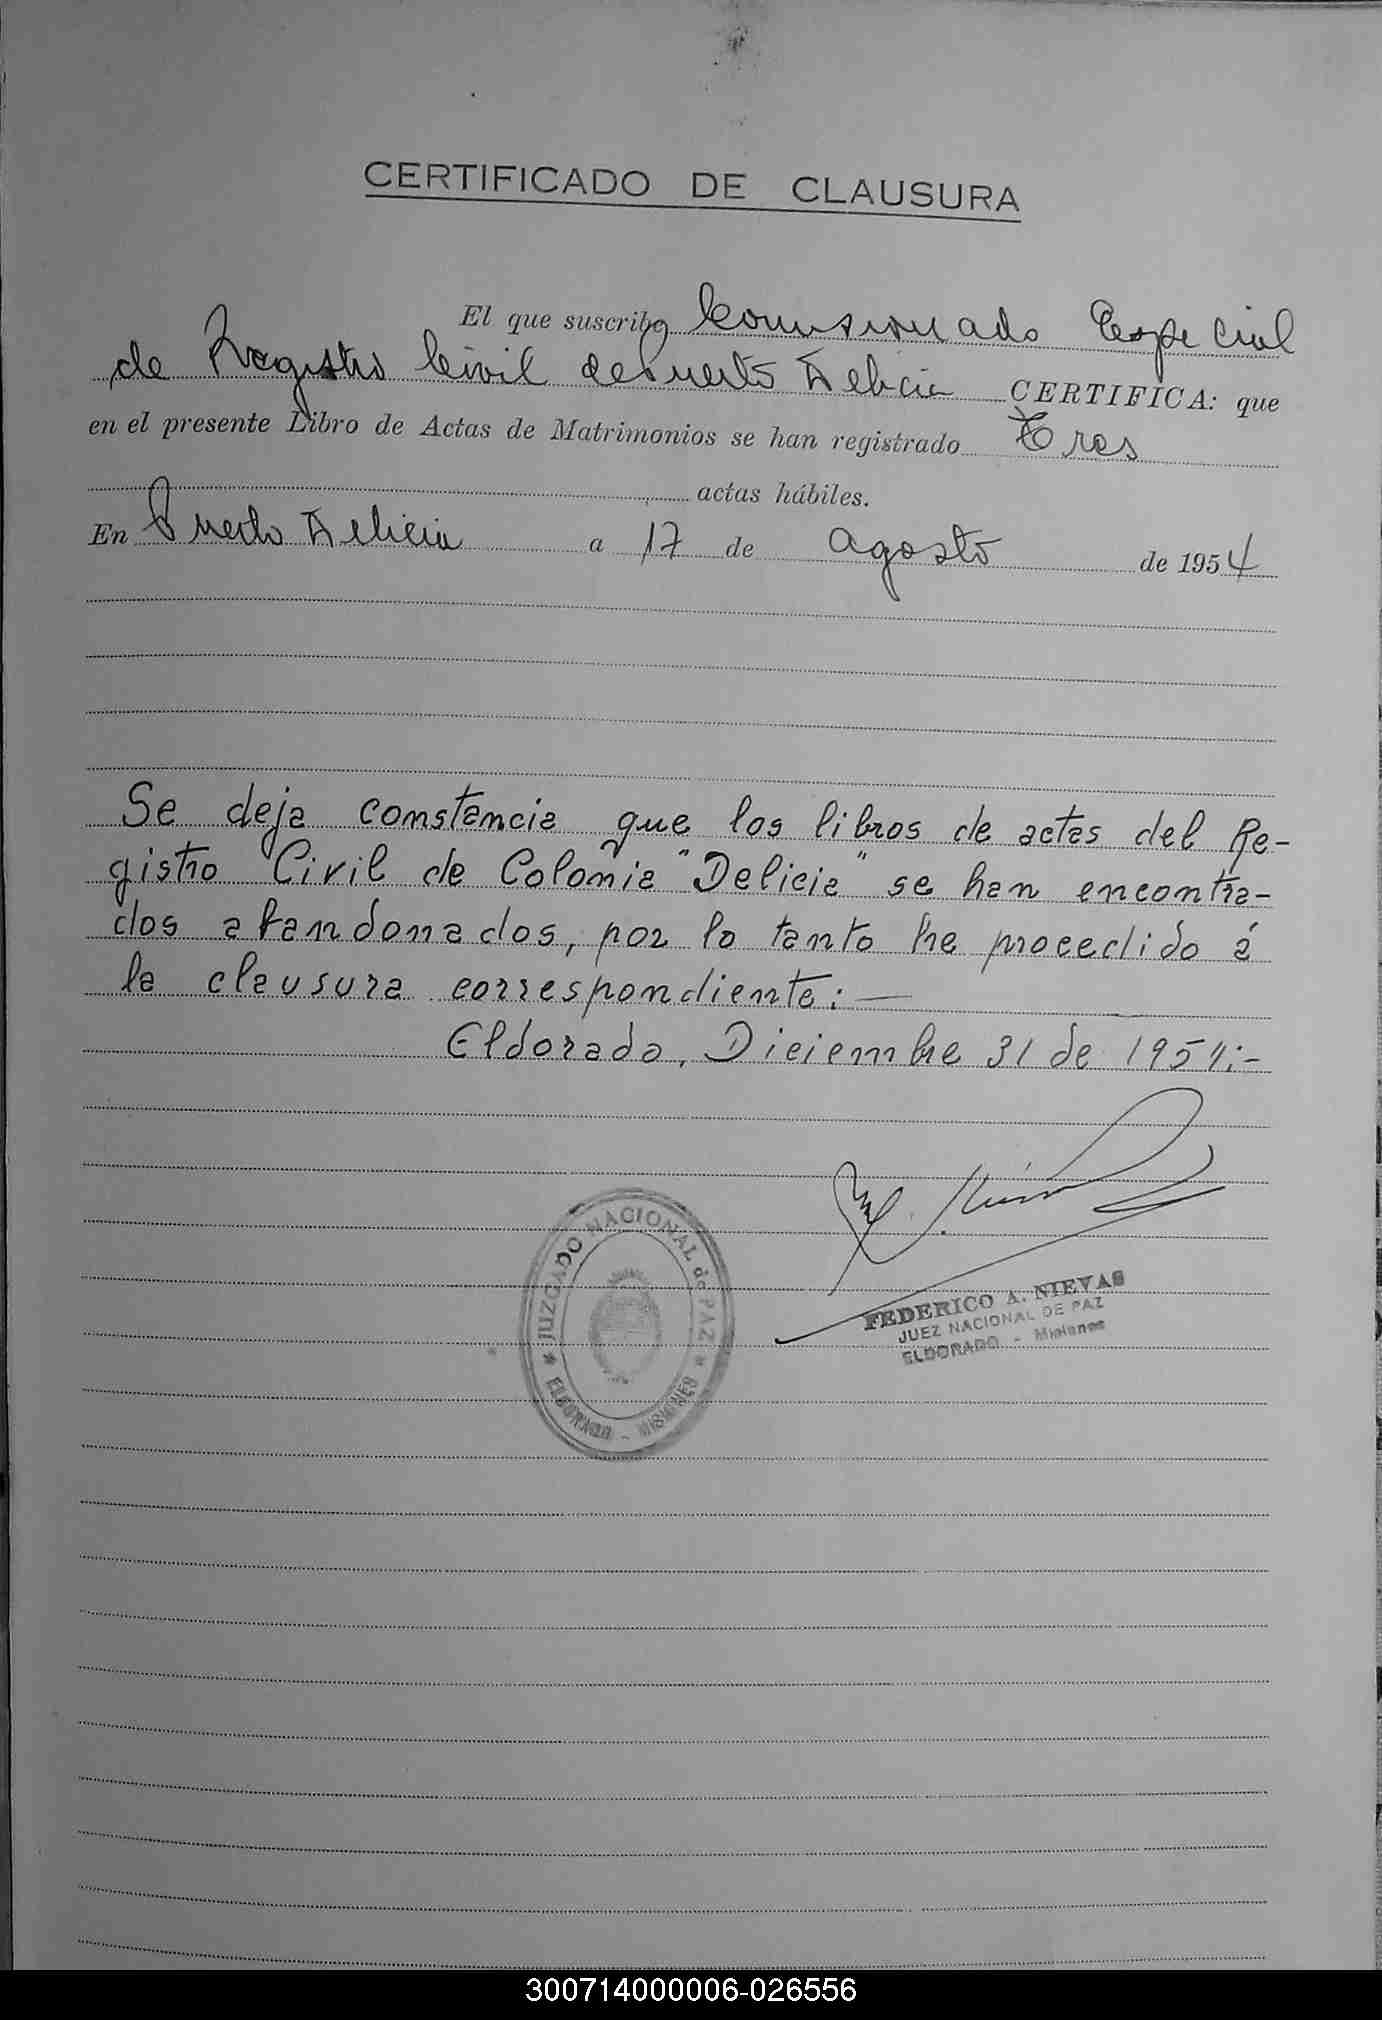 CERTIFICADO DE CLAUSURA
El que suscribe Comisionado Especial
de Registro Civil de Puerto Delicia CERTIFICA: que
en el presente Libro de Actas de Matrimonios se han registrado Tres
actas hábiles.
En Puerto Delicia a 17 de agosto de 1954
Se deja constancia que los libros de actas del Re-
gistro Civil de Colonia "Delicia" se han encontra-
dos abandonados, por lo tanto he procedido á
la clausura correspondiente:—
Eldorado, Diciembre 31 de 1954:-
JUZGADO NACIONAL de PAZ
ELDORADO - MISIONES
FEDERICO A. NIEVAS
JUEZ NACIONAL DE PAZ
ELDORADO - Misiones
300714000006-026556